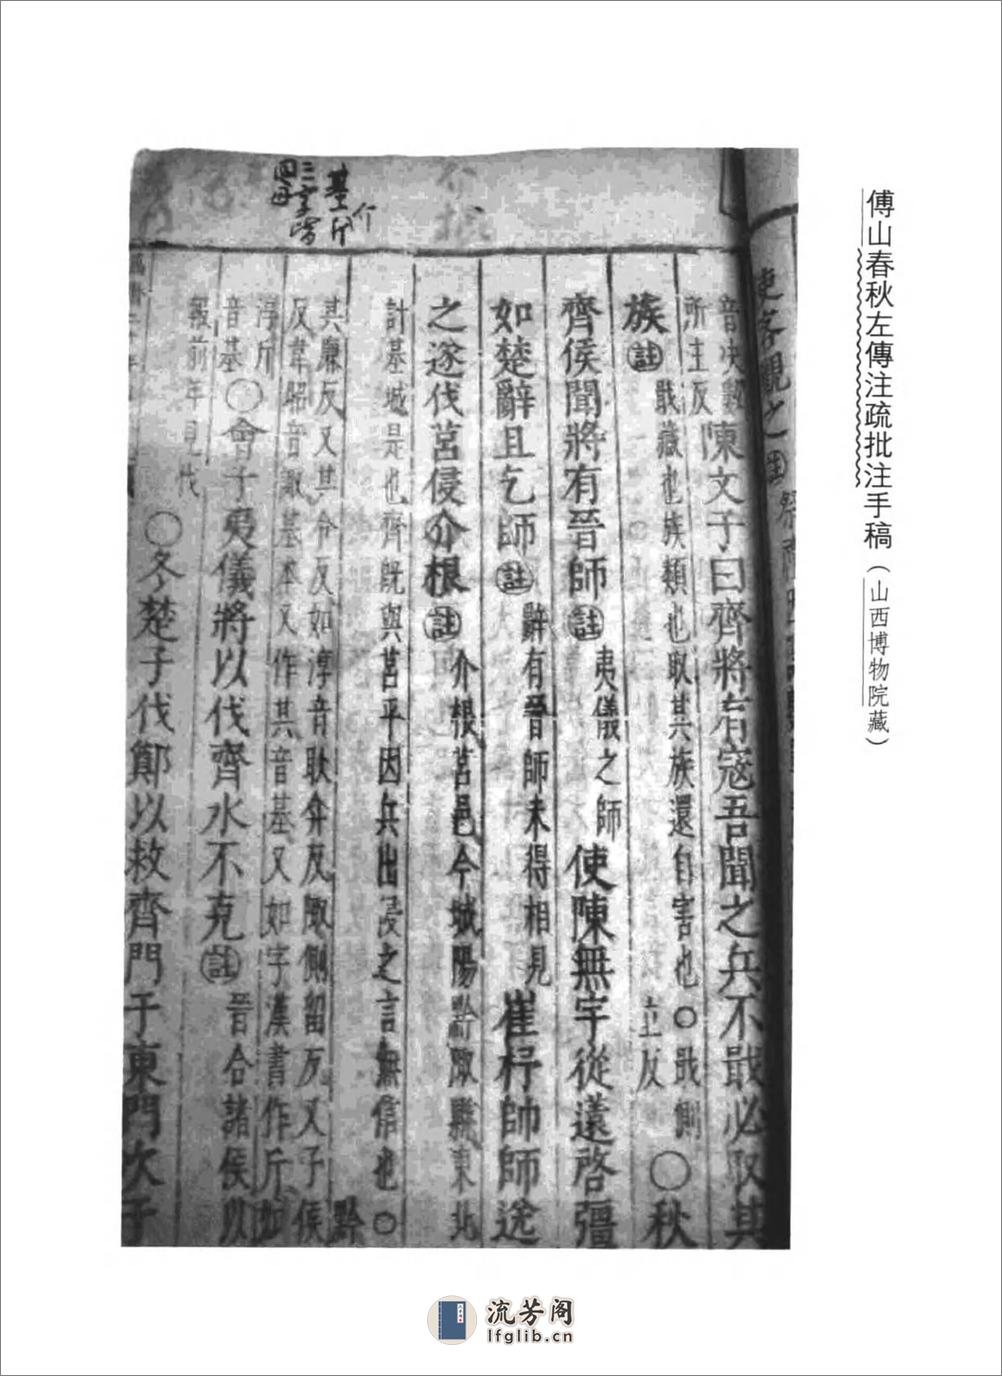 傅山春秋左傳注疏批注手稿（山西博物院藏）
基斤
介
三字皆
使客觀之㊟祭
音決數
所主反
陳文子曰齊將有寇吾聞之兵不戢必取其
族㊟
戢藏也族類也取其族還自害也○戢側
立反
○秋
齊侯聞將有晉師㊟
夷儀之師
使陳無宇從薳啓彊
如楚辭且乞師㊟
辭有晉師未得相見
崔杼帥師送
之遂伐莒侵介根㊟
介根莒邑今城陽黔陬縣東北
計基城是也齊既與莒平因兵出侵之言無信也○
黔
其廉反又其今反如淳音耿弇反陬側留反又子侯
反韋昭音諏基本又作其音基又如字漢書作斤如
淳斤
音基○會于夷儀將以伐齊水不克㊟
晉合諸侯以
報前年見伐
○冬楚子伐鄭以救齊門于東門次于
流芳阁
lfglib.cn